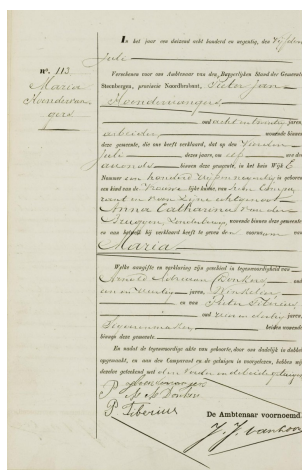 In het jaar een duizend acht honderd en negentig, den vijftienden
Juli
Nº. 113.
Maria
Hoendervan-
gers
Verscheen voor ons Ambtenaar van den Burgerlijken Stand der Gemeente
Steenbergen, provincie Noordbrabant, Pieter Jan
Hoendervangers
oud achtentwintig jaren,
arbeider, wonende binnen
deze gemeente, die ons heeft verklaard, dat op den
Juli dezes jaars, om elf ure des
avonds binnen deze gemeente, in het huis Wijk E
Nummer een honderd vijfennegentig is geboren
een kind van de Vrouwelijke kunne, van hem Compa-
rant en van zijne echtgenoote
Anna Catharina van der
wonende binnen deze gemeente
en van hetwelk hij verklaard heeft te geven den voornaam van
Maria
Welke aangifte en verklaring zijn geschied in tegenwoordigheid van
Arnold Adriaan Donkers oud
jaren, Winkelier
en van Pieter Tiberius
oud jaren,
beiden wonende
binnen deze gemeente.
En nadat de tegenwoordige akte van geboorte, door ons dadelijk in dubbel
opgemaakt, en aan den Comparant en de getuigen is voorgelezen, hebben wij
dezelve geteekend met den Vader en de beide getuigen
P J Hoendervangers
A. A. Donkers
P Tiberius
De Ambtenaar voornoemd.